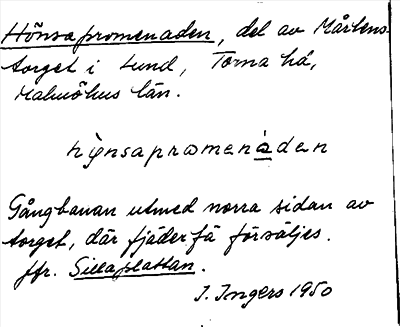 Hönsapromenaden, del av Mårtens-
torget i Lund, Torna hd,
Malmöhus län.
hy̨nsapromenàden
Gångbanan utmed norra sidan av
torget, där fjäderfä försäljes.
Jfr. Sillaplattan.
I. Ingers 1950